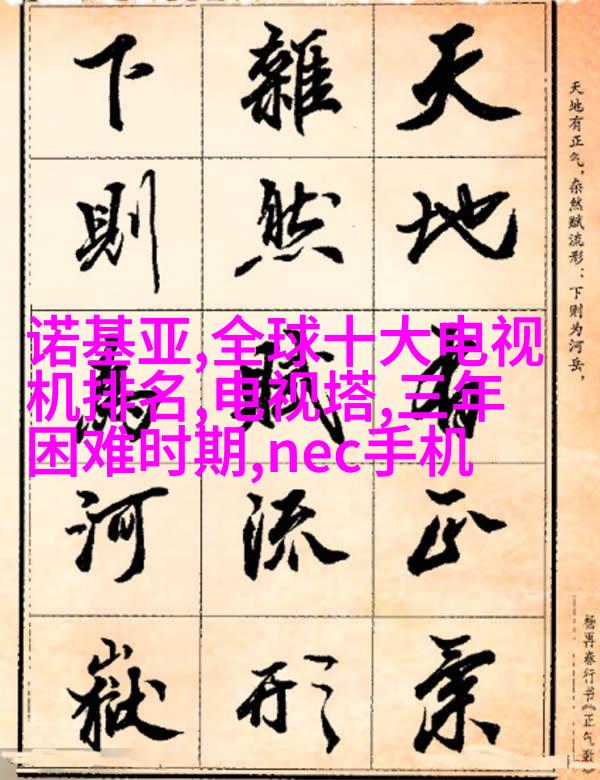 天地有正气，杂然赋流形：下则为河岳，
杨再春行书《正气歌》
天地有正氣
雜然賦流形
下則為河嶽
诺基亚,全球十大电视
机排名,电视塔,三年
困难时期,nec手机